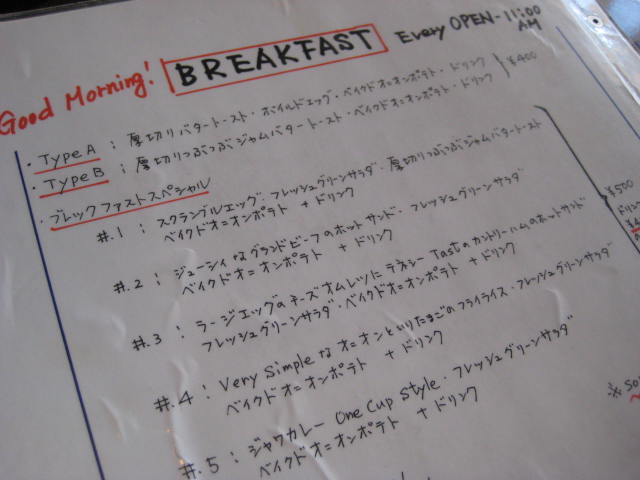 Good Morning! BREAKFAST Every OPEN-11:00 AM
・Type A ; 厚切りバタートースト・ボイルドエッグ・ベイクドオニオンポテト・ドリンク
・Type B ; 厚切りつぶつぶジャムバタートースト・ベイクドオニオンポテト・ドリンク
¥400
・ブレックファストスペシャル
#.1 : スクランブルエッグ・フレッシュグリーンサラダ・厚切りつぶつぶジャムバタートースト
ベイクドオニオンポテト + ドリンク
¥500
#.2 : ジューシィなグランドビーフのホットサンド・フレッシュグリーンサラダ
ベイクドオニオンポテト + ドリンク
#.3 : ラージエッグのチーズオムレツにテネシーTastのカントリーハムのホットサンド
フレッシュグリーンサラダ・ベイクドオニオンポテト + ドリンク
#.4 : Very Simpleなオニオンといりたまごのフライライス・フレッシュグリーンサラダ
ベイクドオニオンポテト + ドリンク
#.5 : ジャワカレー One Cup Style・フレッシュグリーンサラダ
ベイクドオニオンポテト + ドリンク